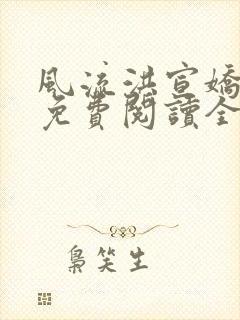 風流洪宣嬌
免費閱讀全
梟笑生